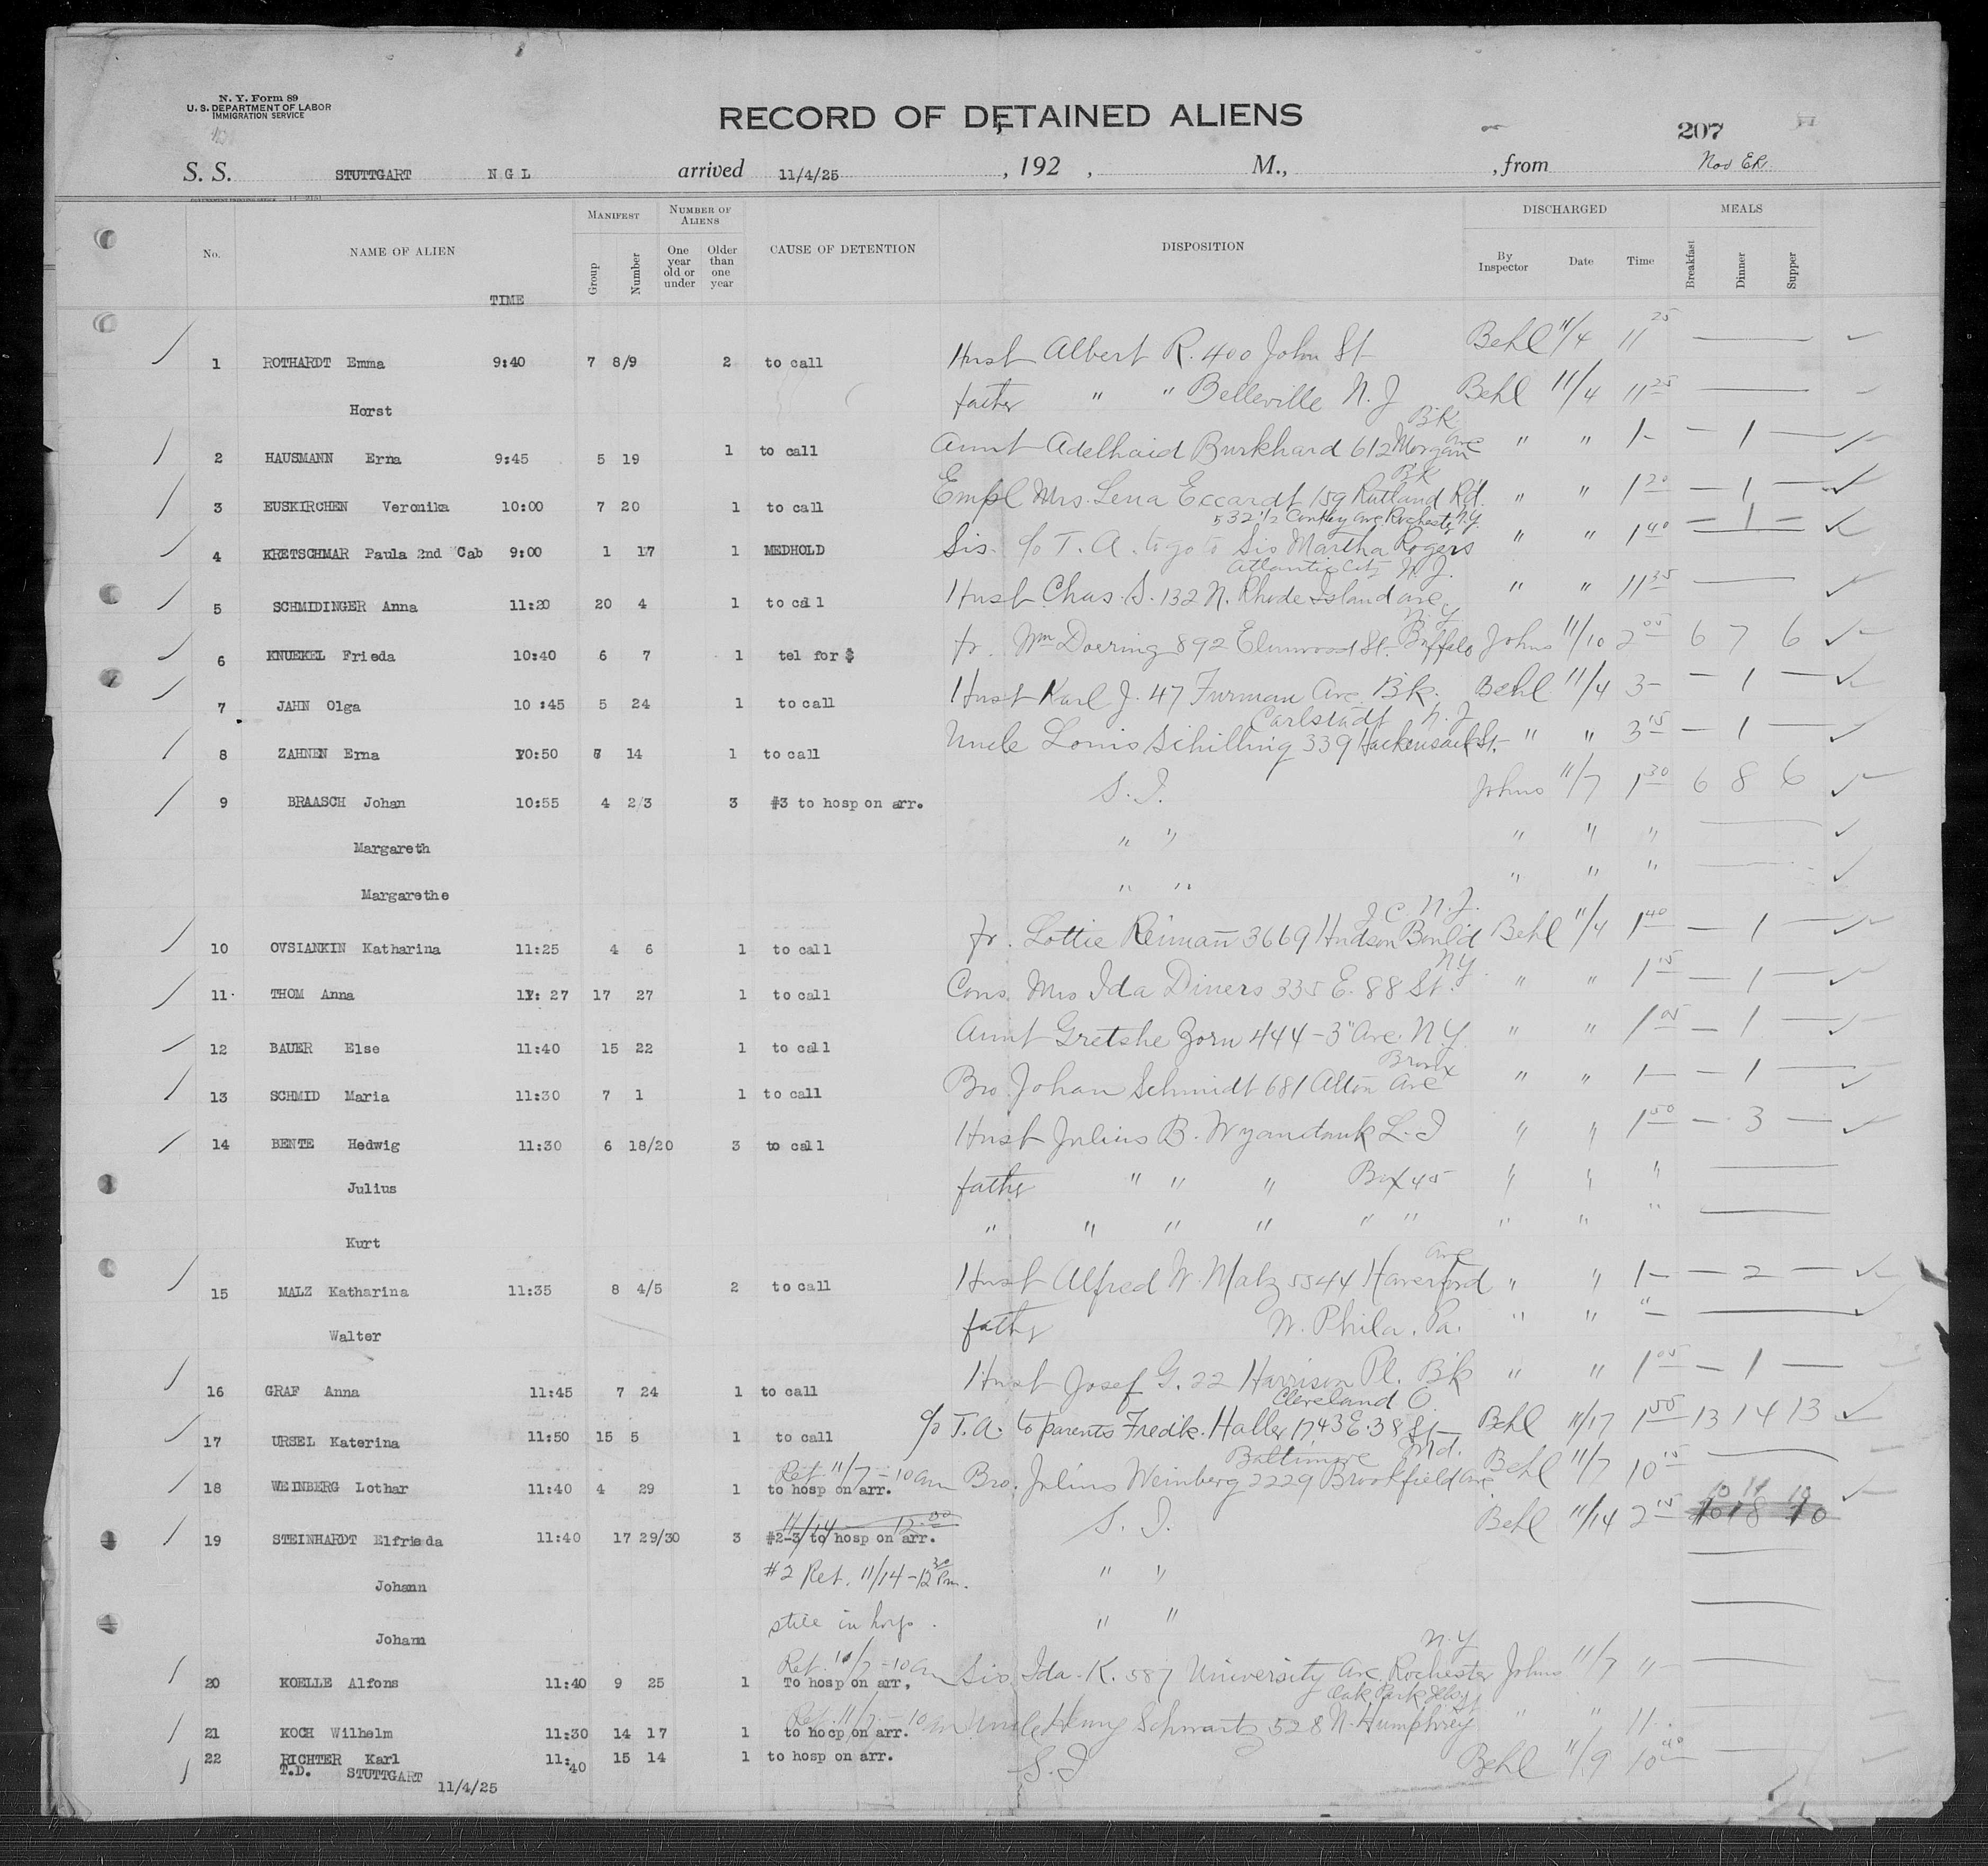 N. Y. Form 89
U. S. DEPARTMENT OF LABOR
IMMIGRATION SERVICE
RECORD OF DETAINED ALIENS
207
S. S. STUTTGART N G L arrived 11/4/25, 192 , M., , from Nov
No. NAME OF ALIEN TIME MANIFEST Group Number NUMBER OF ALIENS One year old or under Older than one year CAUSE OF DETENTION DISPOSITION DISCHARGED By Inspector Date Time MEALS Breakfast Dinner Supper
1 ROTHARDT Emma 9:40 7 8/9 2 to call Husb Albert R. 400 John St Behl 11/4 11 25 —
Horst father " " Belleville N. J Behl 11/4 11 25 —
2 HAUSMANN Erna 9:45 5 19 1 to call Aunt Adelhaid Burkhard 612 Morgan Ave B'K. " " 1— — 1 —
3 EUSKIRCHEN Veronika 10:00 7 20 1 to call Empl Mrs. Lena Eccardt 159 Rutland Rd. BK " " 1 20 — 1 —
4 KRETSCHMAR Paula 2nd Cab 9:00 1 17 1 MEDHOLD Sis. c/o T. A. to go to Sis Martha Rogers 532 1/2 Conkey Ave Rochester N.Y. " " 1 40 — 1 —
5 SCHMIDINGER Anna 11:20 20 4 1 to call Husb Chas. S. 132 N. Rhode Island ave Atlantic City N. J. " " 11 35 —
6 KNUEKEL Frieda 10:40 6 7 1 tel for $ fr. Wm Doering 892 Elmwood St. Buffalo N. Y Johns 11/10 2 00 6 7 6
7 JAHN Olga 10 :45 5 24 1 to call Husb Karl J. 47 Furman Ave. B'k. Behl 11/4 3— — 1 —
8 ZAHNEN Erna 10:50 14 1 to call Uncle Louis Schilling 339 Hackensack St. Carlstadt N. J " " 3 15 — 1 —
9 BRAASCH Johan 10:55 4 2/3 3 #3 to hosp on arr. S. I. Johns 11/7 1 30 6 8 6
Margareth " " " " " —
Margarethe " " " " " —
10 OVSIANKIN Katharina 11:25 4 6 1 to call fr. Lottie Reimann 3669 Hudson Boul'd J. C. N. J. Behl 11/4 1 40 — 1 —
11 THOM Anna 11: 27 17 27 1 to call Cous. Mrs Ida Diners 335 E. 88 St. N.Y. " " 1 15 — 1 —
12 BAUER Else 11:40 15 22 1 to call Aunt Gretche Zorn 444 - 3" Ave. N. Y " " 1 05 — 1 —
13 SCHMID Maria 11:30 7 1 1 to call Bro. Johan Schmidt 681 Alton Ave Bronx " " 1— — 1 —
14 BENTE Hedwig 11:30 6 18/20 3 to call Husb Julius B. Wyandank L. I " " 1 50 — 3 —
Julius father " " " Box 45 " " " —
Kurt " " " " " " " " " —
15 MALZ Katharina 11:35 8 4/5 2 to call Husb Alfred W. Malz 5544 Haverford ave " " 1— — 2 —
Walter father W. Phila. Pa. " " " —
16 GRAF Anna 11:45 7 24 1 to call Husb Josef G. 22 Harrison Pl. B'k " " 1 05 — 1 —
17 URSEL Katerina 11:50 15 5 1 to call c/o T. A. to parents Fredk. Haller 1743 E. 38 St Cleveland O. Behl 11/17 1 50 13 14 13
18 WEINBERG Lothar 11:40 4 29 1 Ret. 11/7 - 10 am to hosp on arr. Bro. Julius Weinberg 2229 Brookfield ave. Baltimore Md. Behl 11/7 10 15 —
19 STEINHARDT Elfrieda 11:40 17 29/30 3 11/14 — 12 #2-3 to hosp on arr. S. I. Behl 11/14 2 15 10
Johann #2 Ret. 11/14 - 12 30 Pm. " " —
Johann still in hosp. " " —
20 KOELLE Alfons 11:40 9 25 1 Ret. 11/7 - 10 am To hosp on arr, Sis Ida K. 587 University Ave Rochester N. Y Johns 11/7 " —
21 KOCH Wilhelm 11:30 14 17 1 Ret. 11/7 - 10 am to hocp on arr. Uncle Henry Schwartz 528 N. Humphrey Oak Park " " 11 —
22 RICHTER Karl 11:40 15 14 1 to hosp on arr. S. I Behl 11/9 10 40 —
T.D. STUTTGART 11/4/25